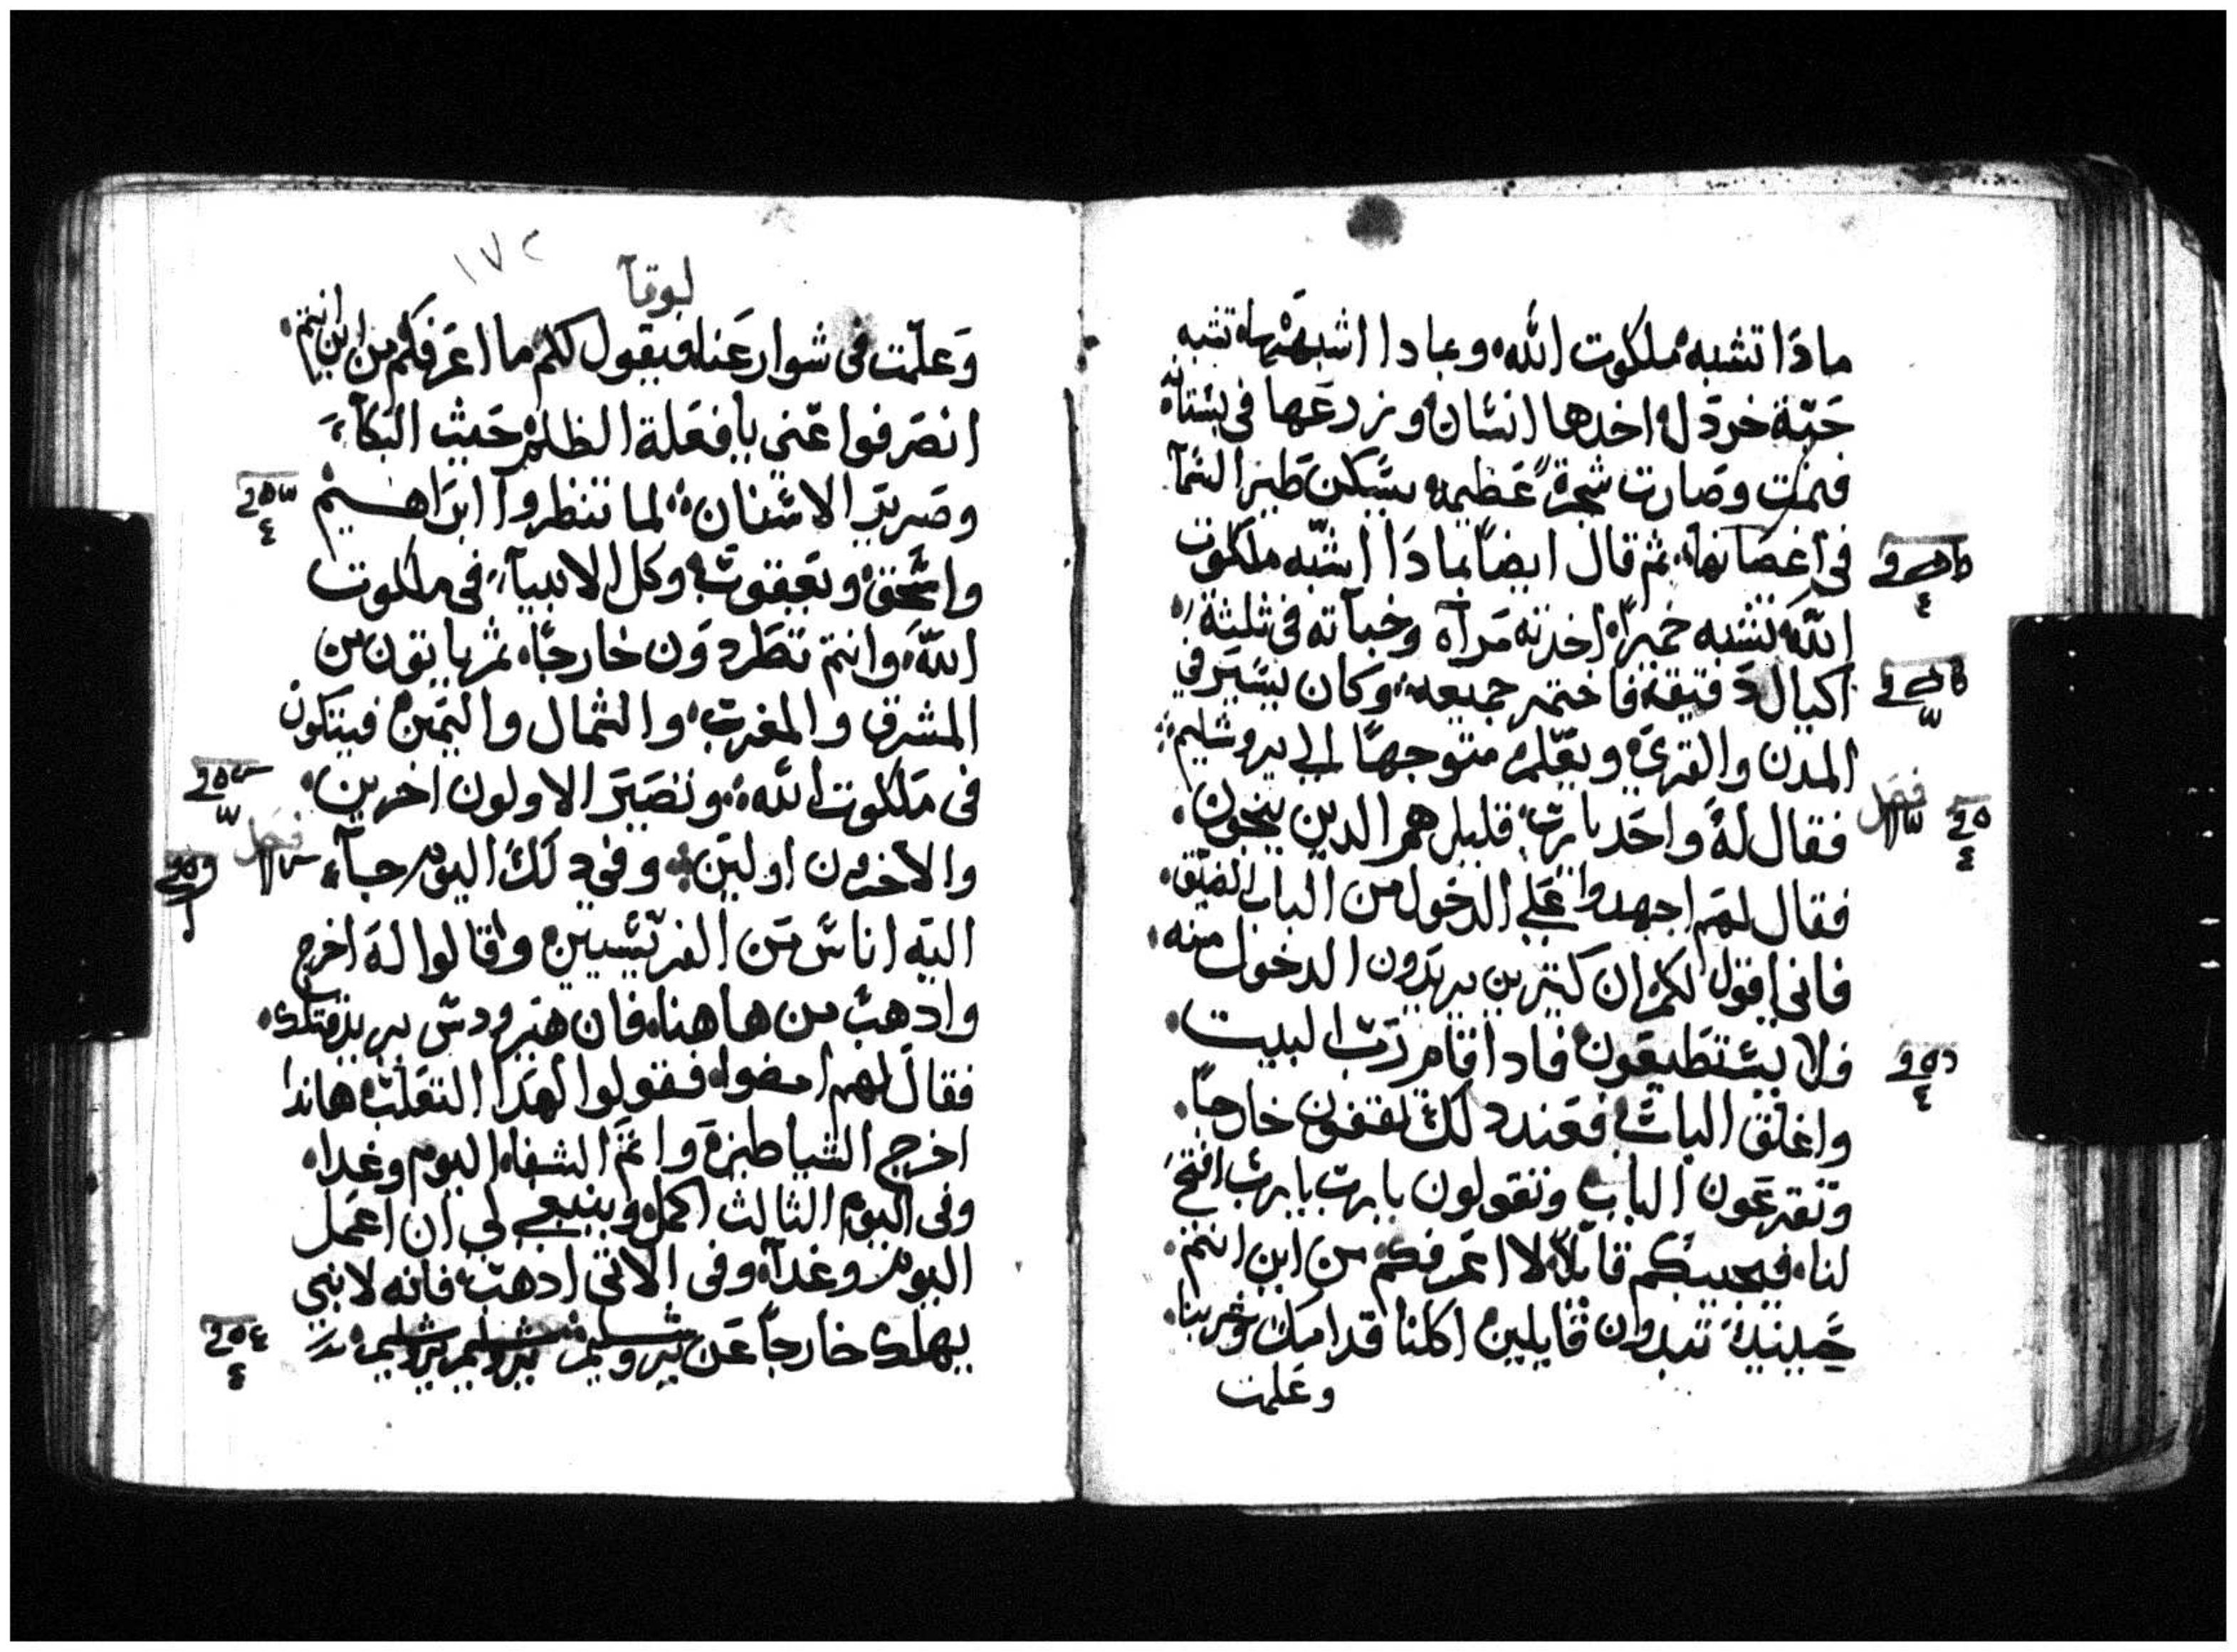 مادا تشبه ملكوت الله وبمادا اشبهها تشبه
حبة خردل اخدها انسان وزرعها في بستانه
فنمت وصارت شجرة عظيمه يسكن طير السمآ
في اغصانها ثم قال ايضا بمادا اشبه ملكوت
الله تشبه خميرا اخدته مرآه وخبآته في ثلثة
اكيال دقيق فاختمر جميعه وكان يسير في
المدن والقري ويعلم متوجها الي يروشليم
فصل
فقال له واحد يارب قليل هم الدين ينجون
فقال لهم اجهدوا علي الدخول من الباب الضيق
فاني اقول لكم ان كتيرين يريدون الدخول منه
ولا يستطيعون فادا قام رب البيت
واغلق الباب فعند دلك تقفون خارجا
وتقرعون الباب وتقولون يارب يارب افتح
لنا فيجيبكم قايلا لا اعرفكم من اين انتم
حينيد تبدوان قايلين اكلنا قدامك وشربنا
وعلمت
١٧٢
لوقآ
وعلمت في شوارعنا فيقول لكم ما اعرفكم من اين انتم
انصرفوا عني يا فعلة الظلم حيث البكآء
وصرير الاسنان لما تنظروا ابراهيم
واسحق ويعقوب وكل الانبيآء في ملكوت
الله وانتم تطردون خارجا ثم ياتون من
المشرق والمغرب والشمال واليمين فيتكون
في ملكوت الله وتصير الاولون اخرين
والاخرون اولين وفي دلك اليوم جآء
فصل
اليه اناس من الفريسيين وقالوا له اخرج
وادهب من هاهنا فان هيرودس يريد قتلك
فقال لهم امضوا فقولوا لهدا التعلب هاندا
اخرج الشياطين واتم الشفاه اليوم وغدا
وفي اليوم الثالث اكمل وينبغي لي ان اعمل
اليوم وغدآ وفي الاتي ادهب فانه لا نبي
يهلك خارجا عن يروشليم يروشليم يروشليم